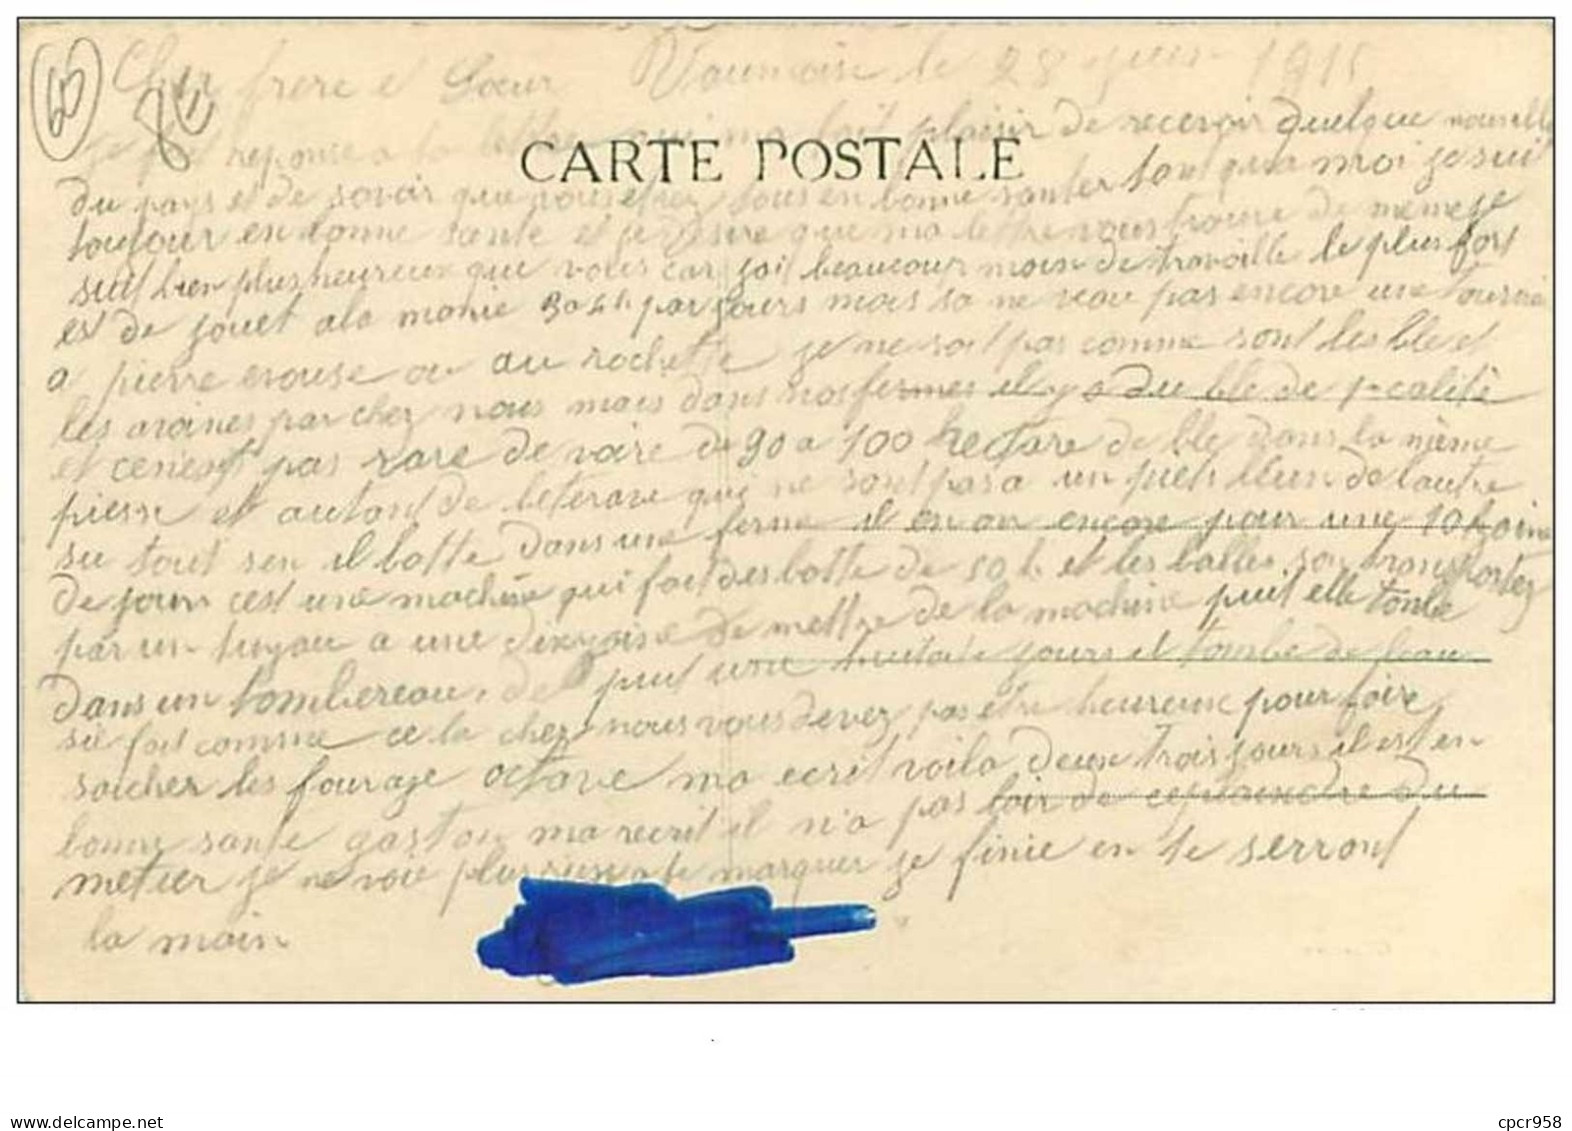 65
8E
Cher frere et Soeur Vaumoise le 28 1915
je fai reponse a ta lettre qui ma fait plaisir de recevoir quelque nouvelle
CARTE POSTALE
du pays et de savoir que vous etiez tous en bonne santer tant qua moi je suit
toujour en bonne sante et je desire que ma lettre vous trouve de meme je
suit bien plus heureux que vous car jai beaucour moin de travaille le plus fort
est de jouet a la manie 3 a 4 h par jours mais sa ne veau pas encore une tourné
a pierre erouse ou au rochette je ne sait pas comme sont les ble et
les avaines par chez nous mais dans nos fermes il y a du ble de 1r calité
et ce nest pas rare de voire de 90 a 100 hectare de ble dans la même
piesse et autant de beterave qui ne sont pas a un pieds leun de lautre
su tout sen il batte dans une ferme il en on encore pour une 10tzaine
de jours cest une machine qui fait des botte de 50 k et les balles son transportez
par un tuyau a une dizaine de mettre de la machine puit elle tonbe
dans un tombereau, de puit une huitaite jours il tombe de leau
sil fait comme ce la chez nous vous devez pas etre heureux pour faire
saicher les fourage octave ma ecrit voila deux trois jours il est en
bonne sante gaston ma recrit il n'a pas lair de ceplaindre du
metier je ne voie plus rien a te marquer je finie en te serront
la main
cpcr958
www.delcampe.net